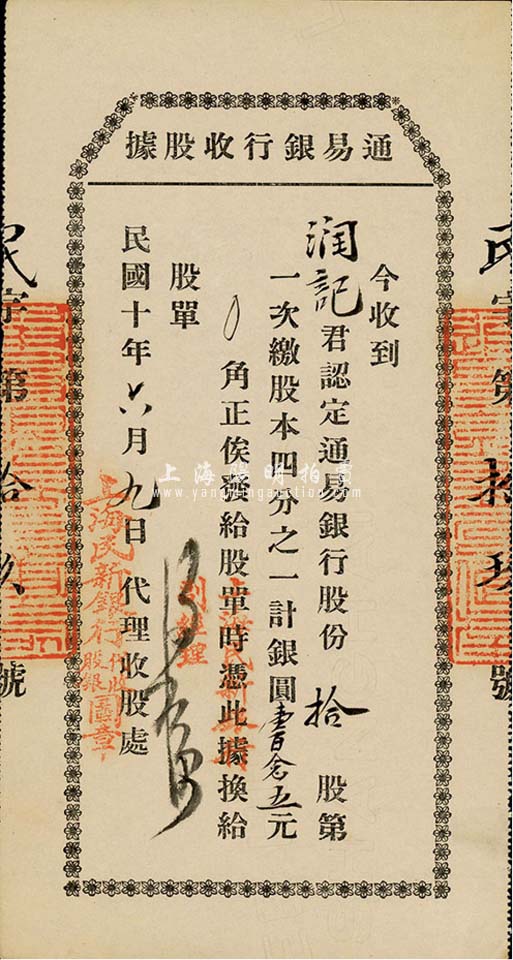 通易銀行收股據
今收到
潤記君認定通易銀行股份拾股第
一次繳股本四分之一計銀圓壹百念五元
0角正俟發給股單時憑此據換給
股單
民國十年六月九日代理收股處
上海民新銀行代收股銀圖章
上海民新銀行
副經理
民字第拾玖號
民字第拾玖號
上海陽明拍賣
www.yangmingauction.com